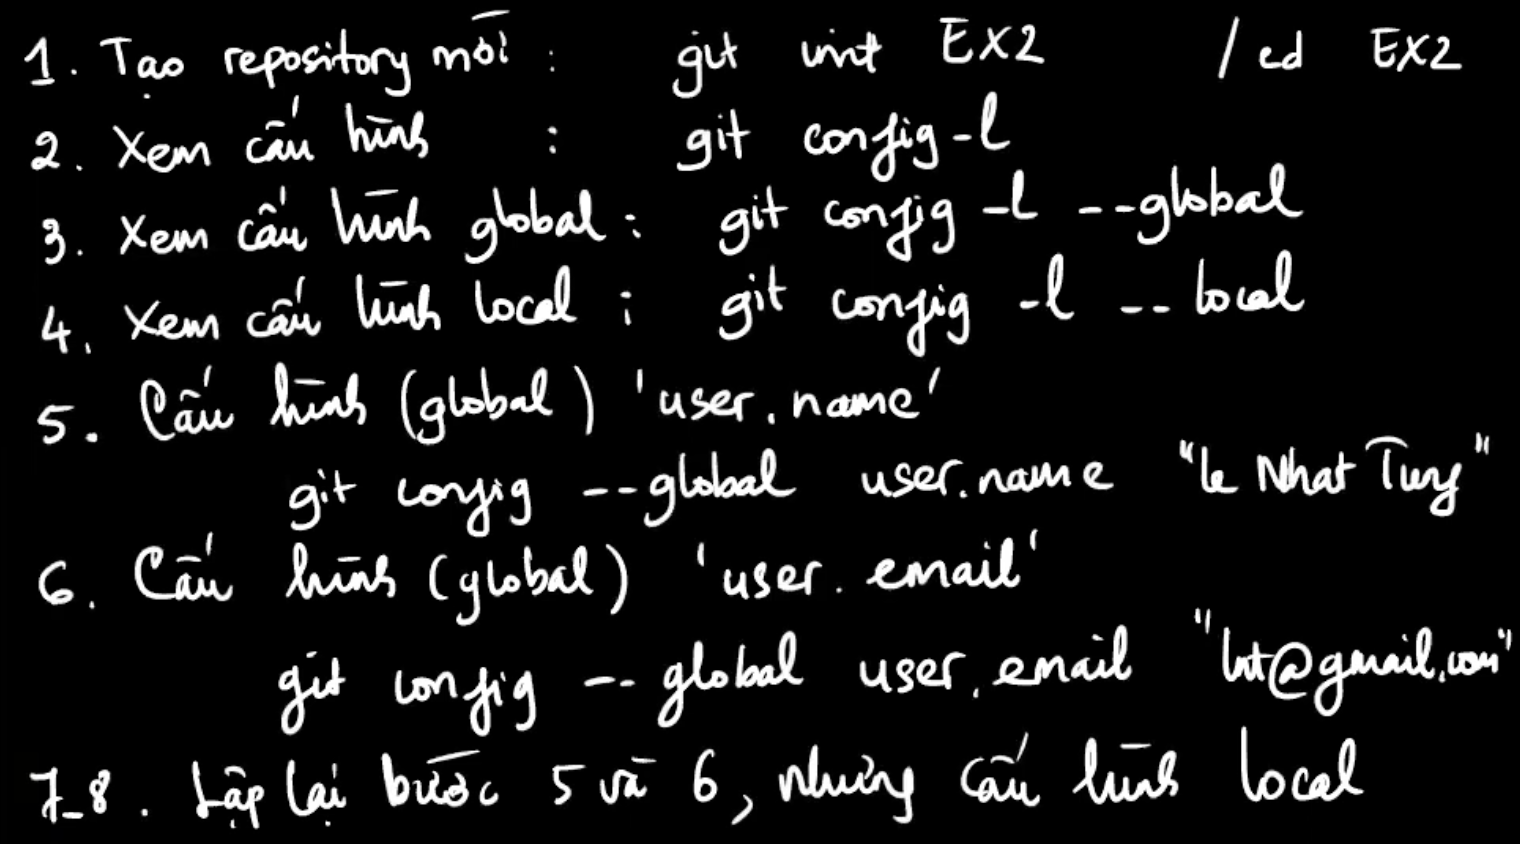 1. Tạo repository mới : git init EX2 / cd EX2
2. Xem cấu hình : git config -l
3. Xem cấu hình global : git config -l --global
4. Xem cấu hình local : git config -l -- local
5. Cấu hình (global) 'user.name'
git config --global user.name "Le Nhat Tung"
6. Cấu hình (global) 'user.email'
git config -- global user.email "lnt@gmail.com"
7_8. Lặp lại bước 5 và 6, nhưng cấu hình local